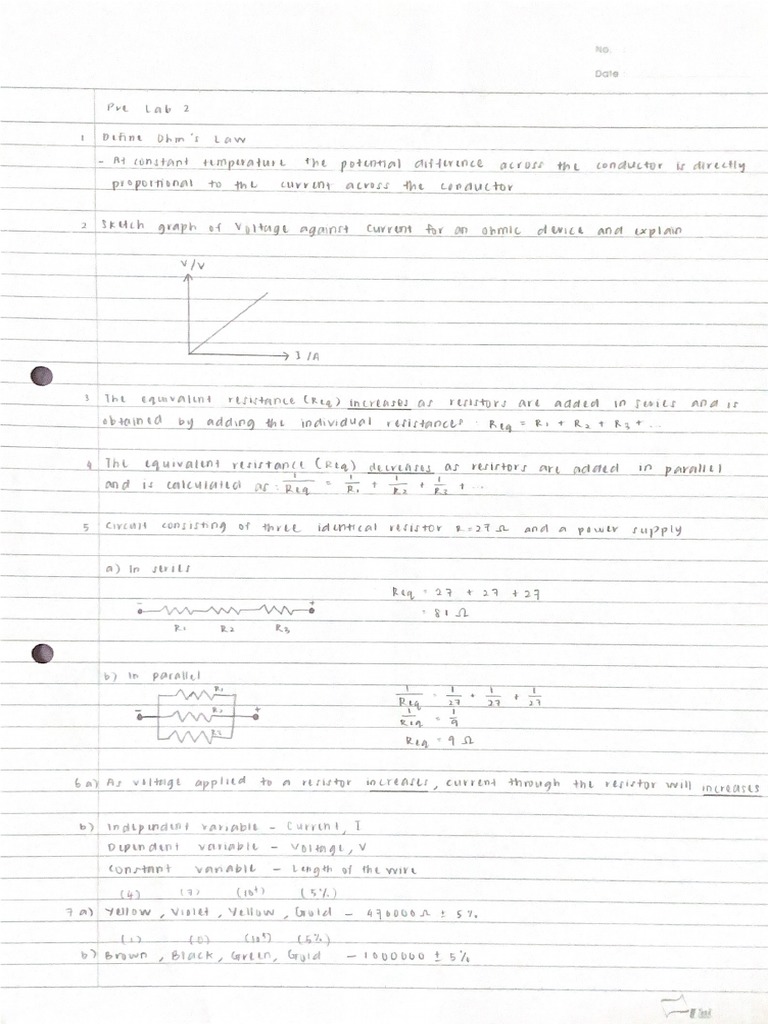 No.
Date
Pre Lab 2
1 Define Ohm's Law
- At constant temperature the potential difference across the conductor is directly
proportional to the current across the conductor
2 Sketch graph of Voltage against Current for an ohmic device and explain
V/V
I/A
3 The equivalent resistance (Req) increases as resistors are added in series and is
obtained by adding the individual resistances : Req = R1 + R2 + R3 + ...
4 The equivalent resistance (Req) decreases as resistors are added in parallel
and is calculated as : 1/Req = 1/R1 + 1/R2 + 1/R3 + ...
5 Circuit consisting of three identical resistor R=27 Ω and a power supply
a) In series
Req = 27 + 27 + 27
- + = 81 Ω
R1 R2 R3
b) In parallel
R1 1/Req = 1/27 + 1/27 + 1/27
- R2 + 1/Req = 1/9
R3 Req = 9 Ω
6 a) As voltage applied to a resistor increases, current through the resistor will increases
b) Independent variable - Current, I
Dependent variable - Voltage, V
Constant variable - Length of the wire
(4) (7) (10⁴) (5%)
7 a) Yellow, Violet, Yellow, Gold - 470000 Ω ± 5%
(1) (0) (10⁵) (5%)
b) Brown, Black, Green, Gold - 1000000 ± 5%